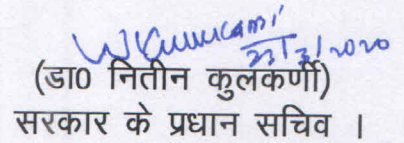 23/3/2020
(डा0 नितीन कुलकर्णी)
सरकार के प्रधान सचिव ।